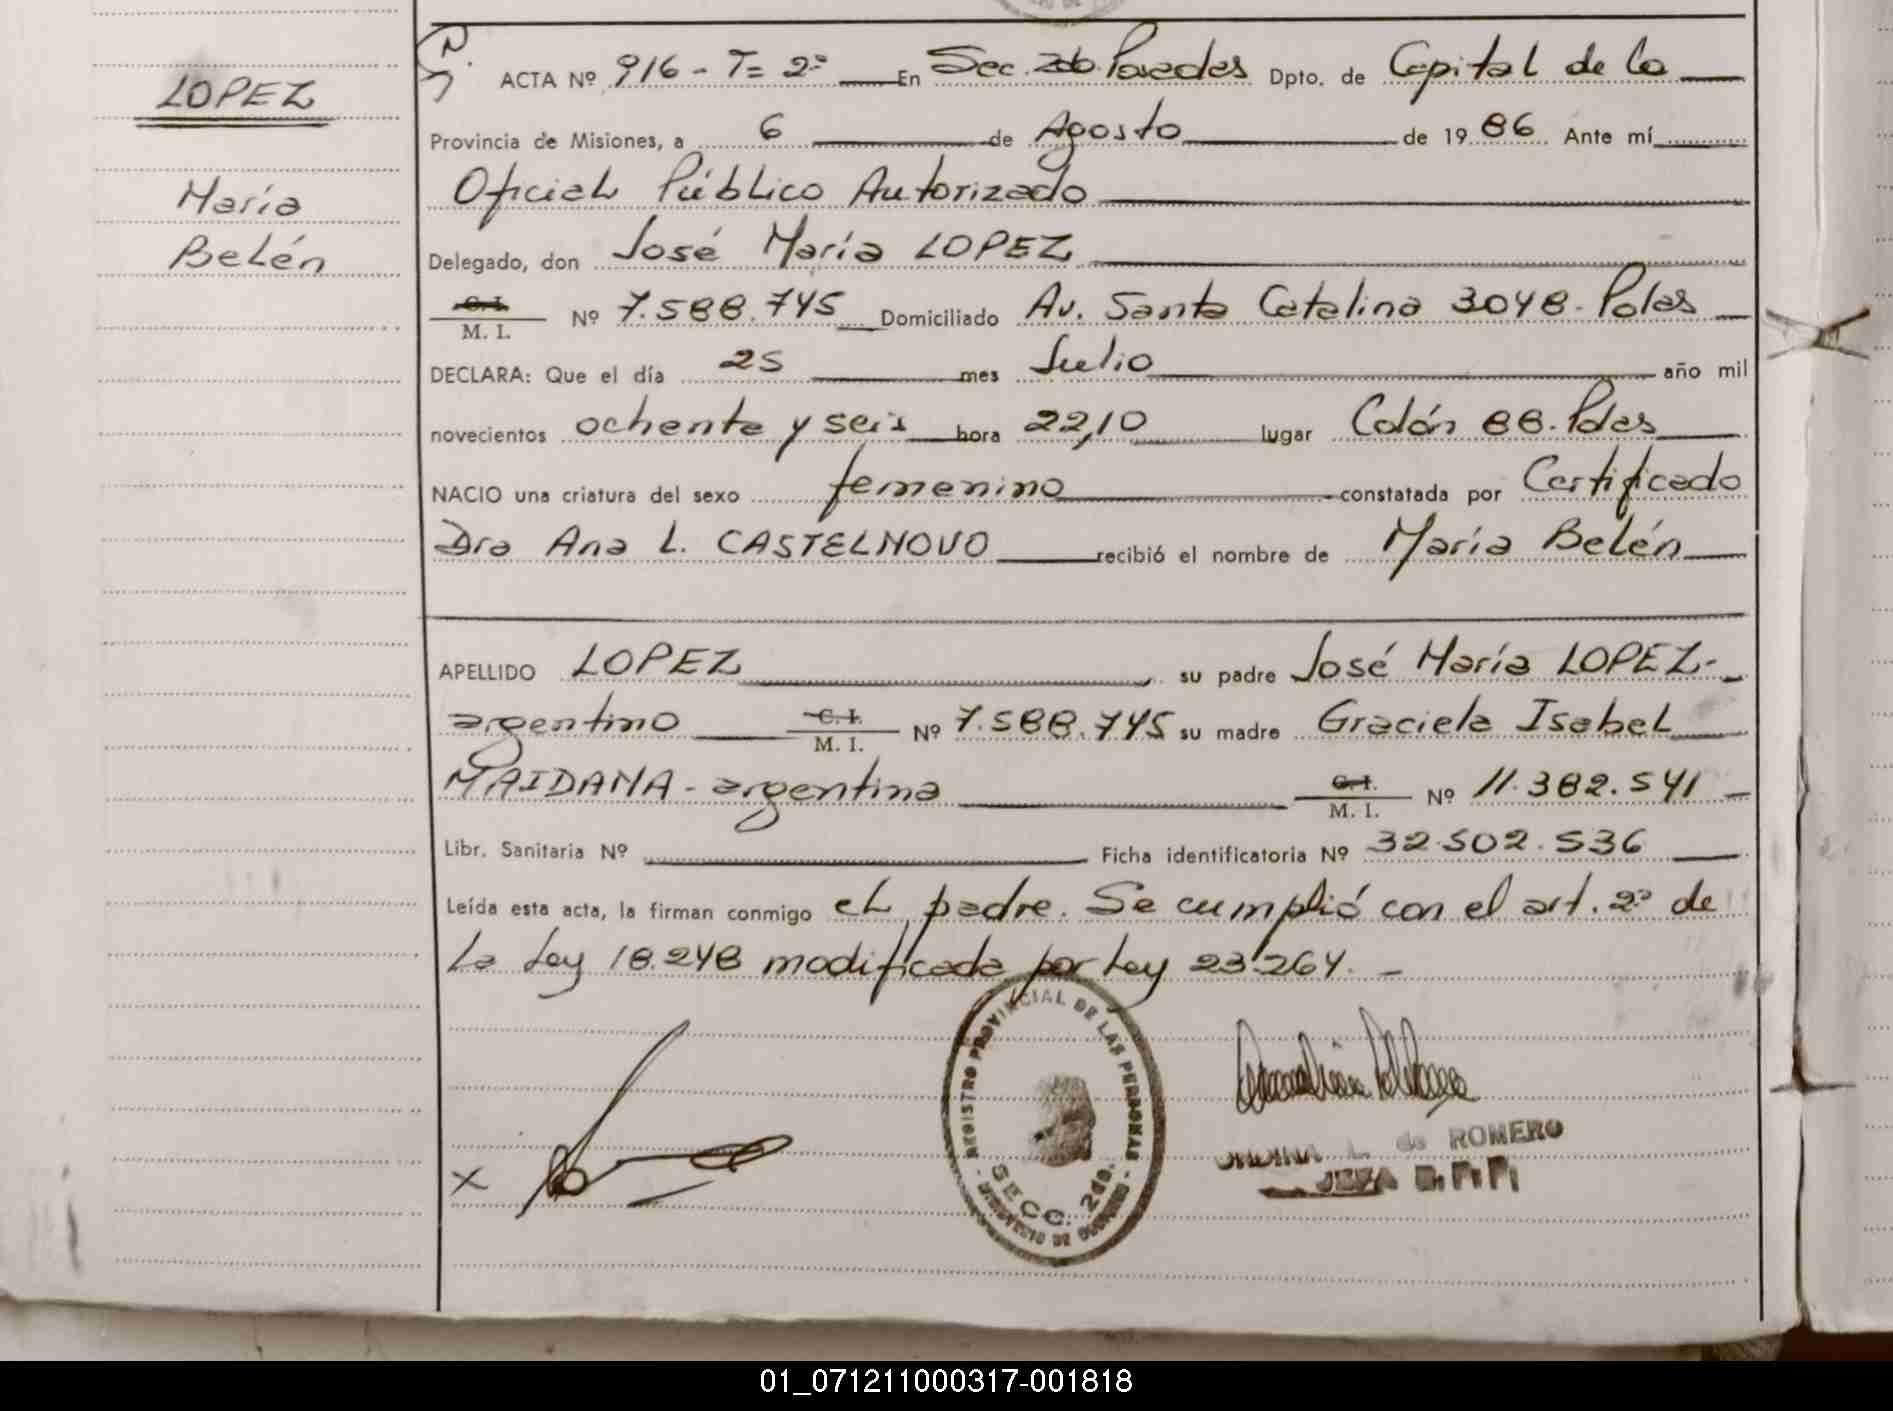 LOPEZ
María
Belén
ACTA Nº 916 - T= 2º En Sec. 2da Posadas Dpto. de Capital de la
Provincia de Misiones, a 6 de Agosto de 1986 Ante mí
Oficial Público Autorizado
Delegado, don José María LOPEZ
C. I.
M. I. Nº 7.588.745 Domiciliado Av. Santa Catalina 3048 - Pdas
DECLARA: Que el día 25 mes Julio año mil
novecientos ochenta y seis hora 22,10 lugar Colón 88 - Pdas
NACIO una criatura del sexo femenino constatada por Certificado
Dra Ana L. CASTELNOVO recibió el nombre de María Belén
APELLIDO LOPEZ su padre José María LOPEZ -
argentino C. I. M. I. Nº 7.588.745 su madre Graciela Isabel
MAIDANA - argentina C. I. M. I. Nº 11.382.541
Libr. Sanitaria Nº Ficha identificatoria Nº 32.502.536
Leída esta acta, la firman conmigo el padre. Se cumplió con el art. 2º de
la Ley 18.248 modificada por Ley 23.264. -
REGISTRO PROVINCIAL DE LAS PERSONAS
SECC. 2da.
X
L. de ROMERO
JEFA
01_071211000317-001818